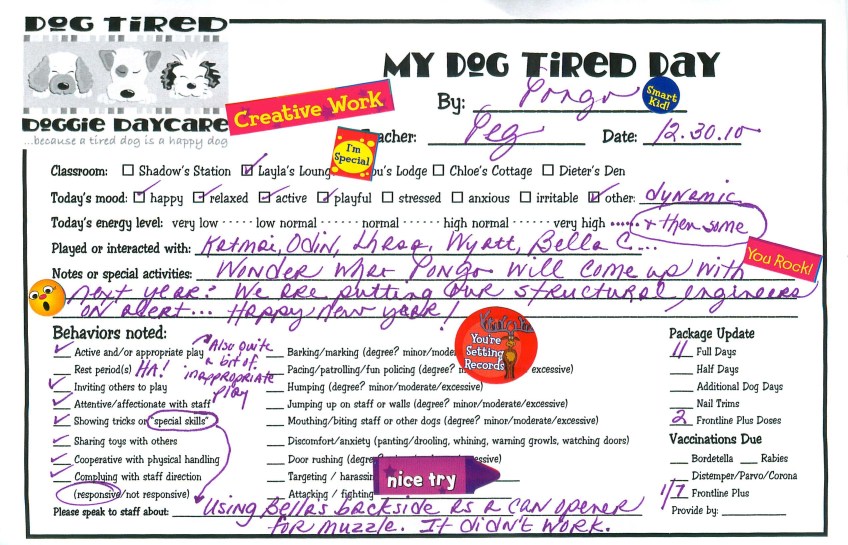 DOG TIRED
DOGGIE DAYCARE
...because a tired dog is a happy dog
MY DOG TIRED DAY
Creative Work
By: Pongo
Smart Kid!
I'm Special
Teacher: Peg Date: 12.30.10
Classroom: ☐ Shadow's Station ☑ Layla's Loung ou's Lodge ☐ Chloe's Cottage ☐ Dieter's Den
Today's mood: ☑ happy ☑ relaxed ☑ active ☑ playful ☐ stressed ☐ anxious ☐ irritable ☑ other: dynamic
Today's energy level: very low ····· low normal ····· normal ····· high normal ······ very high ······ + then some
Played or interacted with: Katmai, Odin, Lhasa, Wyatt, Bella C....
You Rock!
Notes or special activities: Wonder what Pongo will come up with
next year? We are putting our structural engineers
on alert... Happy new year!
You're Setting Records
Behaviors noted:
✓ Active and/or appropriate play
Also quite a bit of inappropriate play
Rest period(s) HA!
✓ Inviting others to play
✓ Attentive/affectionate with staff
✓ Showing tricks or "special skills"
✓ Sharing toys with others
✓ Cooperative with physical handling
✓ Complying with staff direction
(responsive/not responsive)
Barking/marking (degree? minor/mode
Pacing/patrolling/fun policing (degree? m excessive)
Humping (degree? minor/moderate/excessive)
Jumping up on staff or walls (degree? minor/moderate/excessive)
Mouthing/biting staff or other dogs (degree? minor/moderate/excessive)
Discomfort/anxiety (panting/drooling, whining, warning growls, watching doors)
Door rushing (degree
Targeting / harassin
Attacking / fighting
nice try
Package Update
11 Full Days
Half Days
Additional Dog Days
Nail Trims
2 Frontline Plus Doses
Vaccinations Due
Bordetella Rabies
Distemper/Parvo/Corona
1/7 Frontline Plus
Provide by:
Please speak to staff about: Using Bella's backside as a can opener
for muzzle. It didn't work.